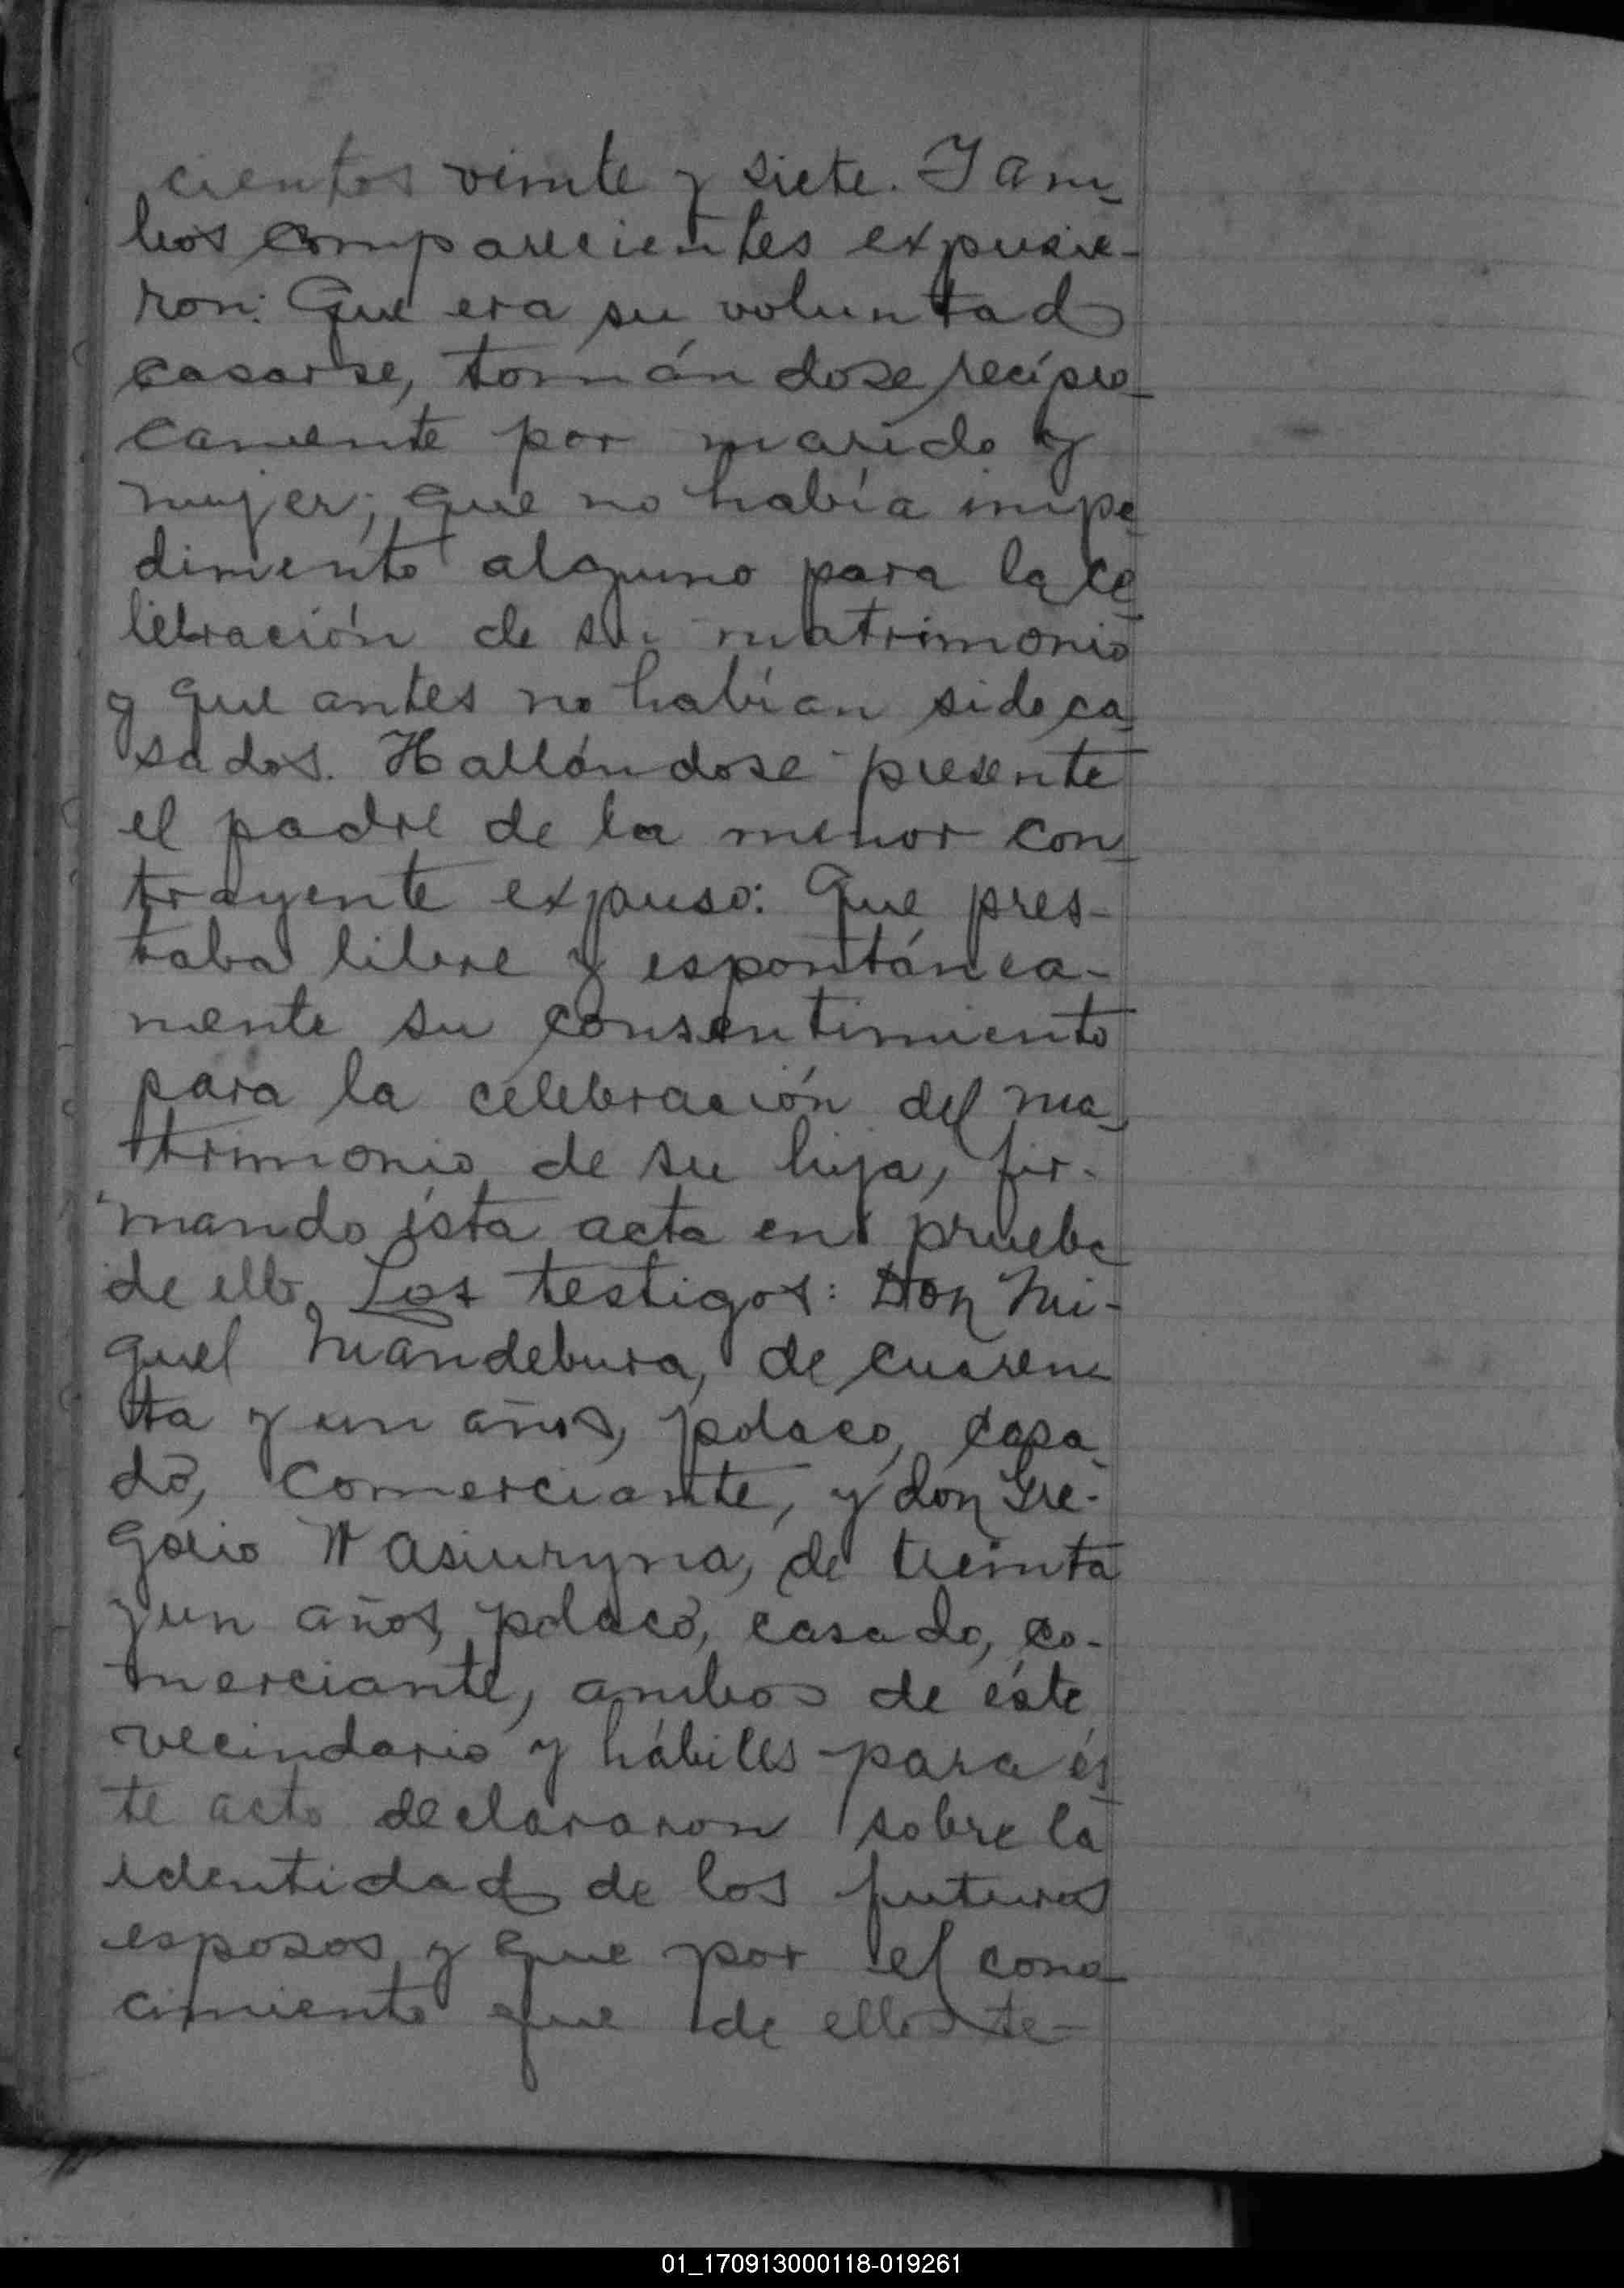 cientos veinte y siete. Y am-
bos comparecientes expusie-
ron: Que era su voluntad
casarse, tomándose recípro-
camente por marido y
mujer; que no había impe-
dimento alguno para la ce-
lebración de su matrimonio
y que antes no habían sido ca-
sados. Hallándose presente
el padre de la menor con-
trayente expuso: Que pres-
taba libre y espontánea-
mente su consentimiento
para la celebración del ma-
trimonio de su hija, fir-
mando ésta acta en prueba
de ello. Los testigos: Don Mi-
guel Mandebura, de cuaren-
ta y un años, polaco, casa-
do, comerciante, y don Gre-
gorio Wasiuryna, de treinta
y un años, polaco, casado, co-
merciante, ambos de éste
vecindario y hábiles para és-
te acto declararon sobre la
identidad de los futuros
esposos y que por el cono-
cimiento que de ellos te-
01_170913000118-019261